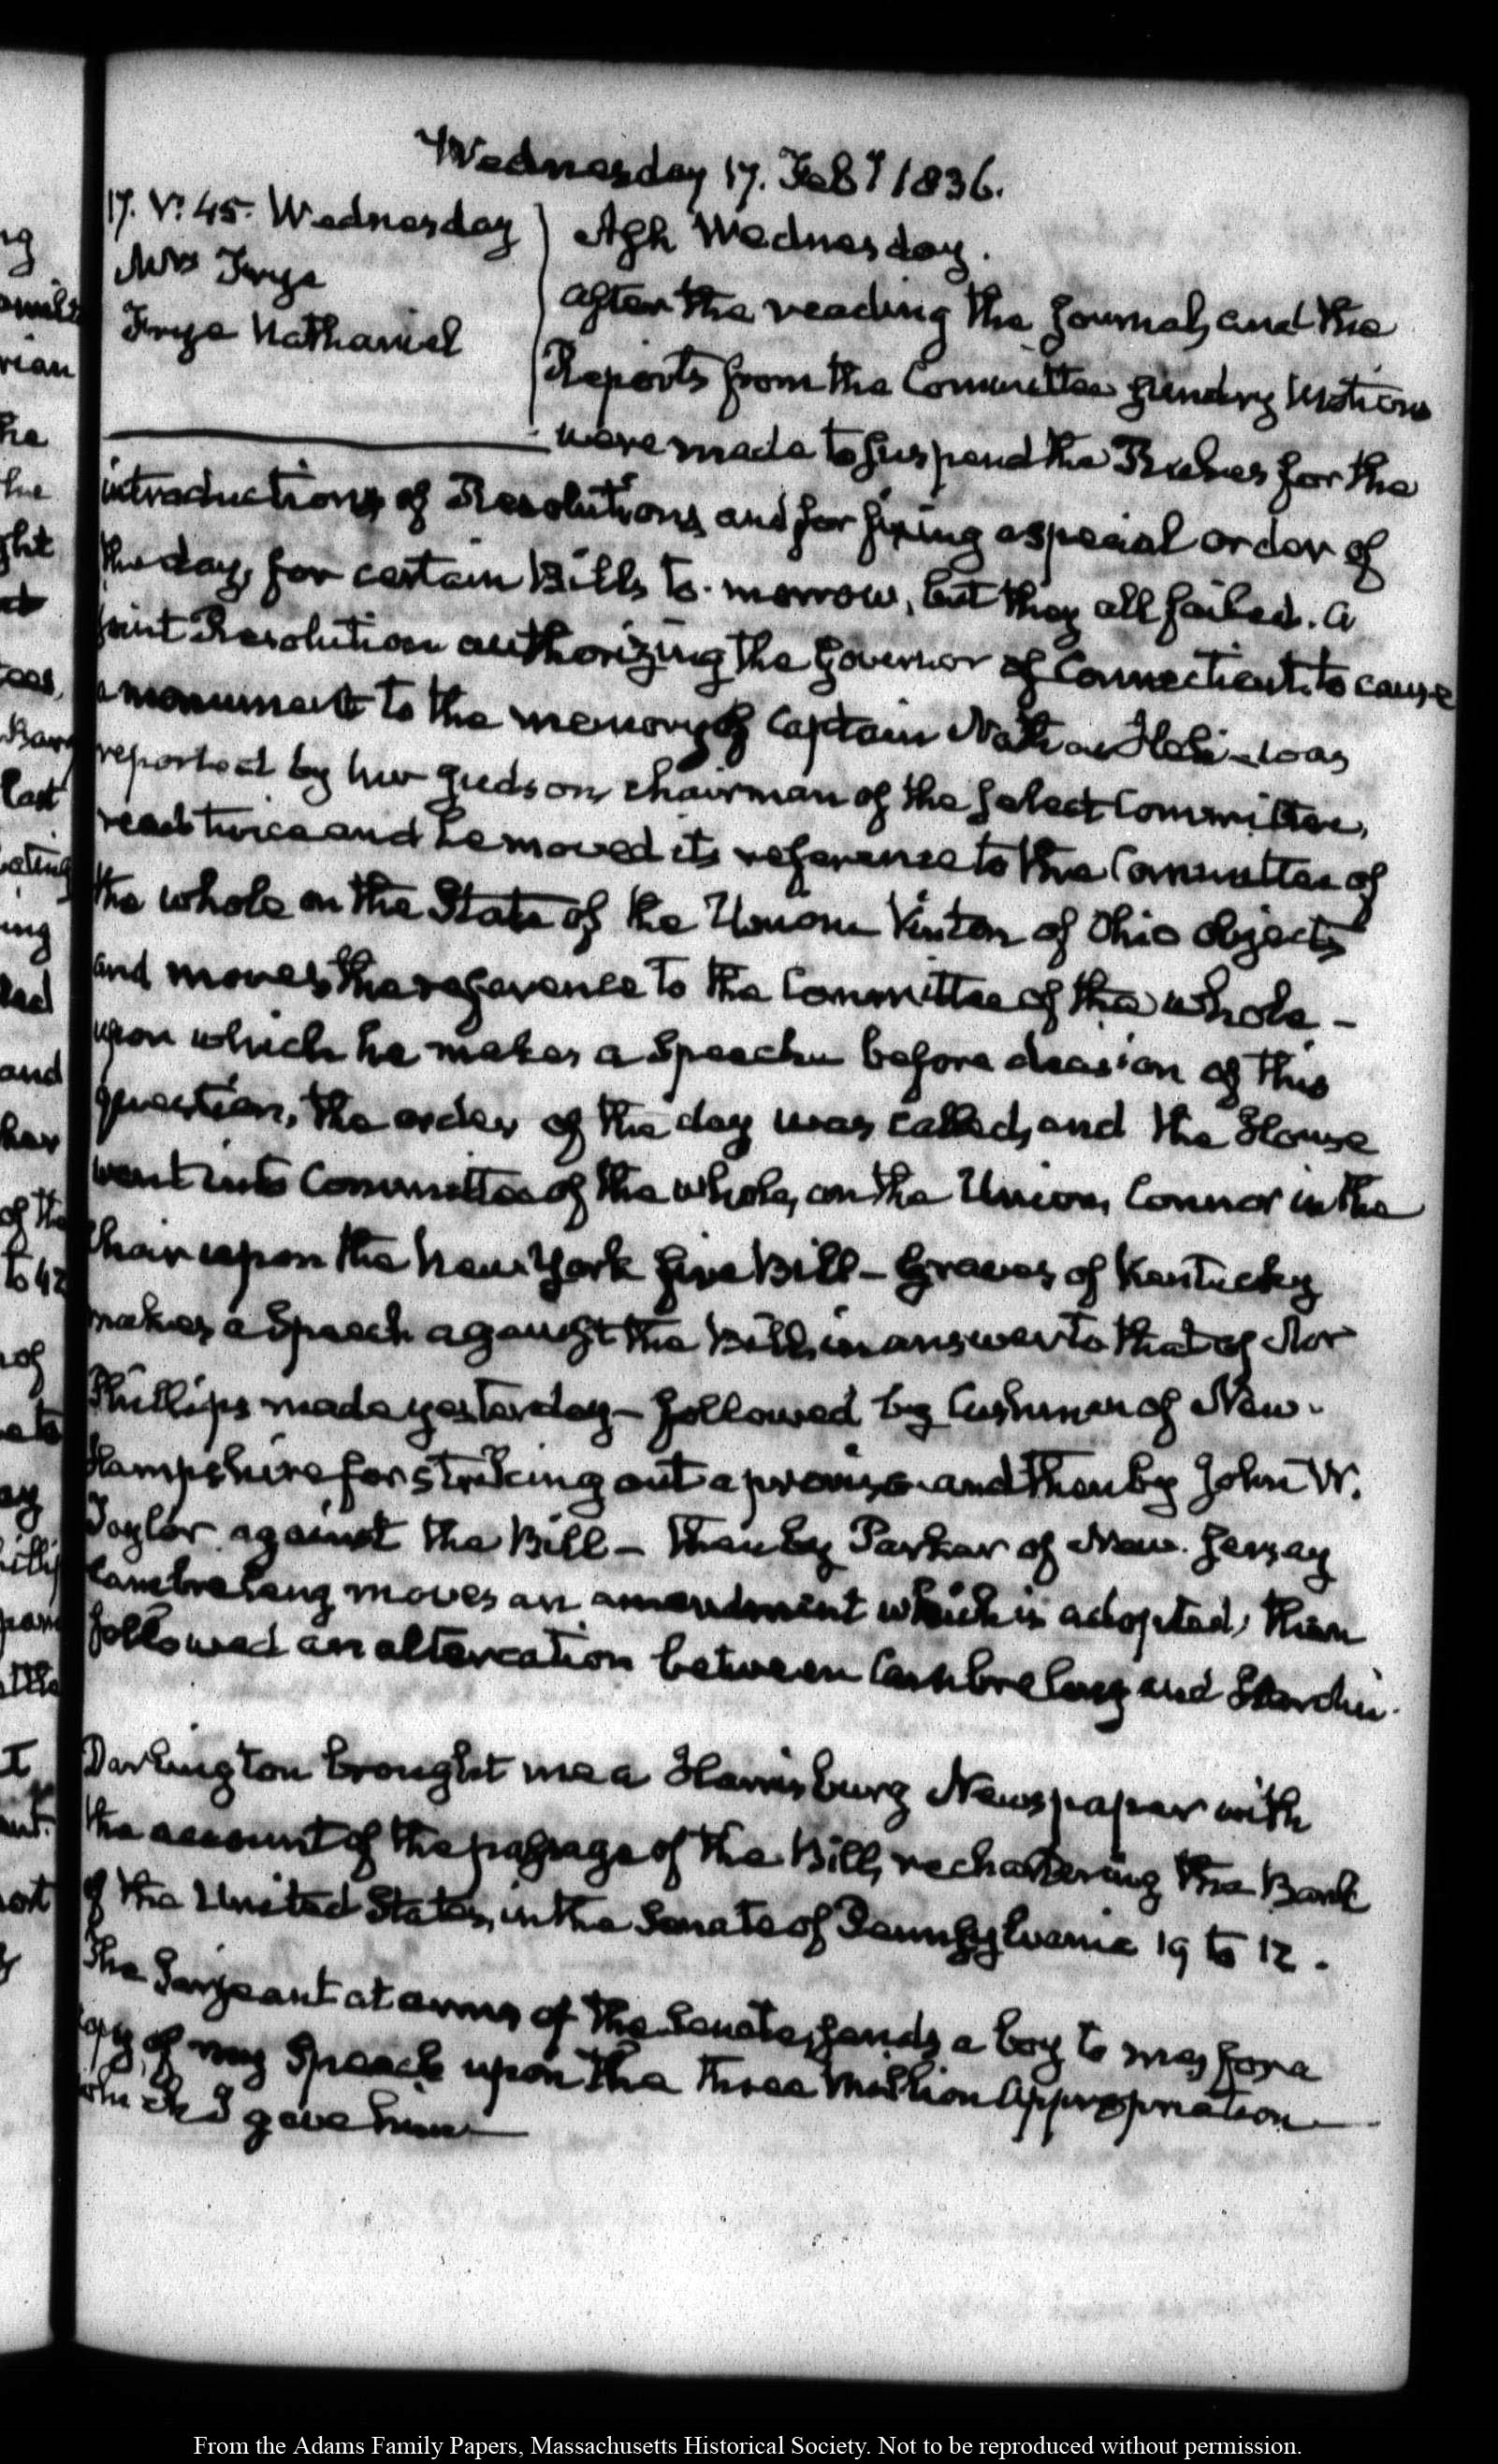 Wednesday 17. Feby 1836.
17. V: 45. Wednesday
Mrs Frye
Frye Nathaniel
Ash Wednesday.
After the reading the Journal, and the
Reports from the Committees sundry motions
were made to suspend the Rules for the
introduction of Resolutions and for fixing a special order of
the day, for certain Bills to-morrow, but they all failed. A
joint Resolution authorizing the Governor of Connecticut to cause
a monument to the memory of Captain Nathan Hale was
reported by Mr Judson, chairman of the select Committee,
read twice and he moved its reference to the Committee of
the whole on the State of the Union Vinton of Ohio objects
and moves the reference to the Committee of the whole –
upon which he makes a Speech before decision of this
question, the order of the day was called, and the House
went into Committee of the whole, on the Union, Connor in the
Chair upon the New York fire Bill – Graves of Kentucky
makes a Speech against the Bill, in answer to that of Mr
Phillips made yesterday – followed by Cushman of New-
Hampshire for striking out a proviso and then by John W.
Taylor against the Bill – then by Parker of New-Jersey
Cambreleng moves an amendment which is adopted, then
followed an altercation between Cambreleng and Hardin.
Darlington brought me a Harrisburg Newspaper with
the account of the passage of the Bill, rechartering the Bank
of the United States, in the Senate of Pennsylvania 19 to 12.
The Serjeant at arms of the Senate, sends a boy to me, for a
copy of my Speech upon the three Million Appropriation—
which I gave him—
ng
rian
he
the
ght
last
ating
ing
and
her
of the
to 42
of
ay
I
From the Adams Family Papers, Massachusetts Historical Society. Not to be reproduced without permission.